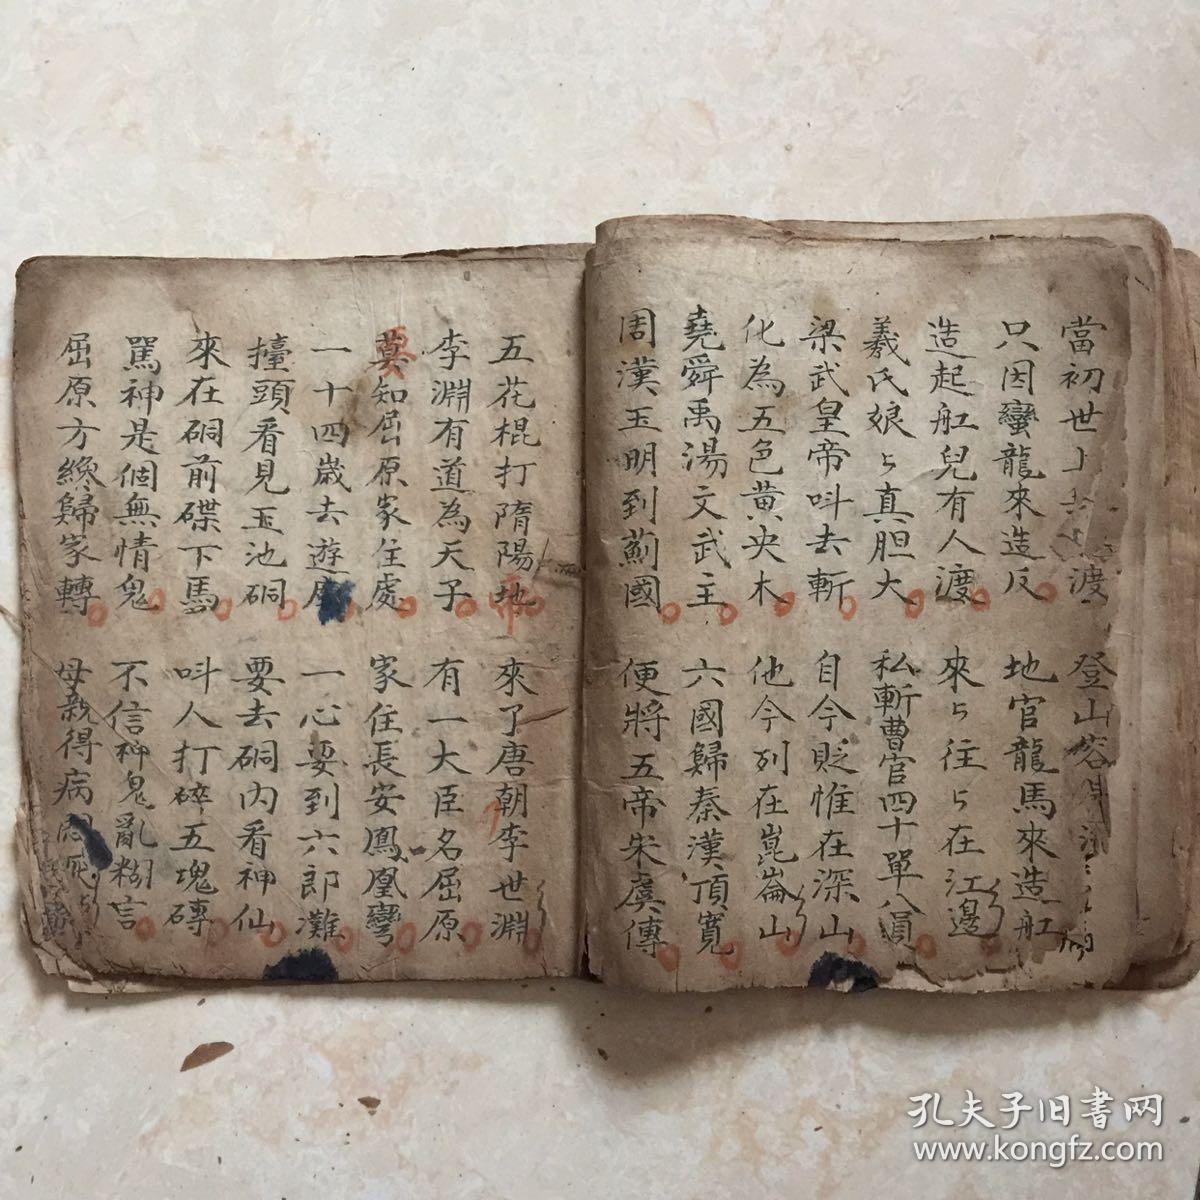 當初世上 渡 登山
只因蠻龍來造反 地官龍馬來造舡
造起舡兒有人渡 來ㄣ往ㄣ在江邊
羲氏娘ㄣ真胆大 私斬曹官四十單八員
梁武皇帝呌去斬 自今貶惟在深山
化為五色黄央木 他今列在崑崙山
堯舜禹湯文武主 六國歸秦漢項寬
周漢玉明到薊國 便將五帝朱虞傳
五花棍打隋陽地 來了唐朝李世淵
李淵有道為天子 有一大臣名屈原
莫知屈原家住處 家住長安鳳凰彎
一十四歲去遊 一心要到六郎灘
擡頭看見玉池硐 要去硐内看神仙
來在硐前磼下馬 呌人打碎五塊磚
罵神是個無情鬼 不信神鬼亂糊言
屈原方纔歸家轉 母親得病
孔夫子旧书网
www.kongfz.com